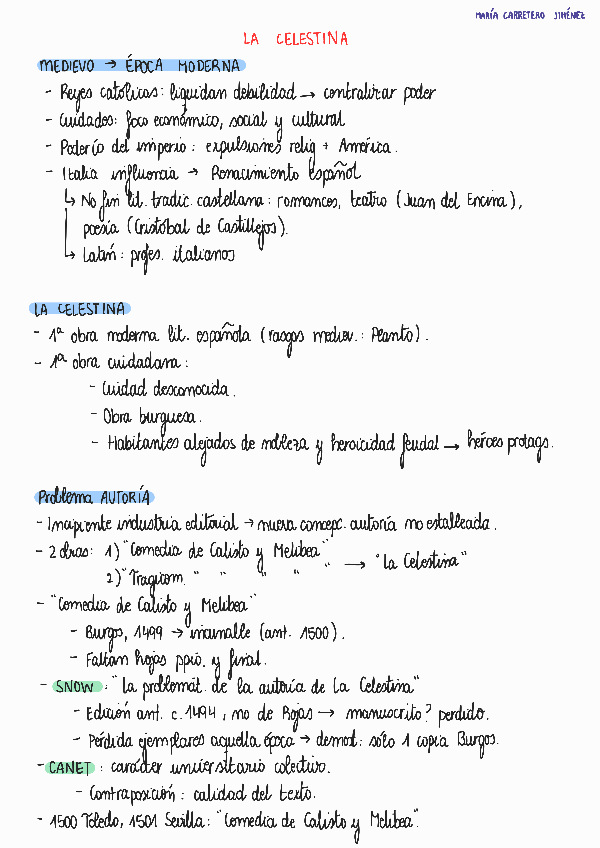 MARÍA CARRETERO JIMÉNEZ
LA CELESTINA
MEDIEVO → ÉPOCA MODERNA
- Reyes católicos: liquidan debilidad → contralizar poder
- Ciudades: foco económico, social y cultural
- Poderío del imperio: expulsiones relig + América.
- Italia influencia → Renacimiento español
↳ No fin lit. tradic. castellana: romances, teatro (Juan del Encina),
poesía (Cristóbal de Castillejos).
↳ Latín: profes. italianos
LA CELESTINA
- 1ª obra moderna lit. española (rasgos mediev.: Planto).
- 1ª obra ciudadana:
- Ciudad desconocida.
- Obra burguesa.
- Habitantes alejados de nobleza y heroicidad feudal → héroes protags.
Problema AUTORÍA
- Incipiente industria editorial → nueva concepc. autoría no establecida.
- 2 obras: 1) "Comedia de Calisto y Melibea"
2) "Tragicom. " " " " → "La Celestina"
- "Comedia de Calisto y Melibea"
- Burgos, 1499 → incunable (ant. 1500).
- Faltan hojas ppio. y final.
- SNOW: "La problemát. de la autoría de La Celestina"
- Edición ant. c. 1494, no de Rojas → manuscrito? perdido.
- Pérdida ejemplares aquella época → demost: sólo 1 copia Burgos.
- CANET: carácter universitario colectivo.
- Contraposición: calidad del texto.
- 1500 Toledo, 1501 Sevilla: "Comedia de Calisto y Melibea".